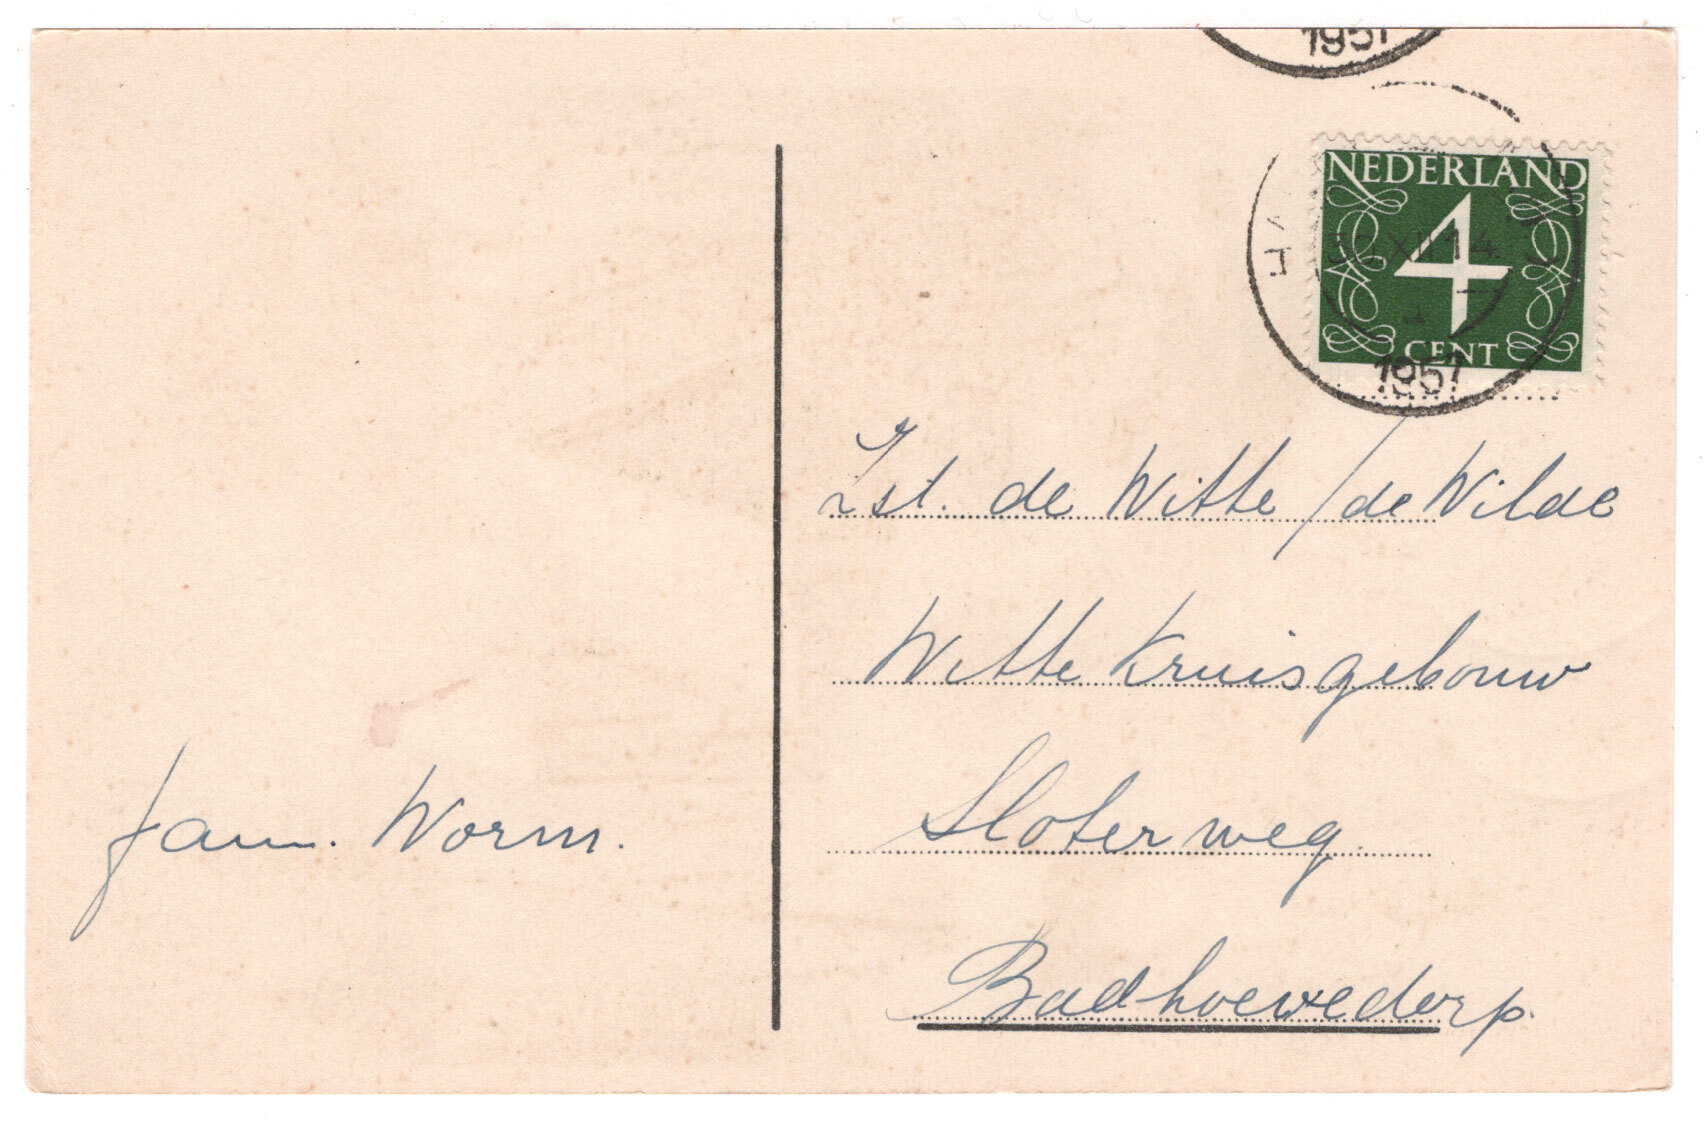 1957
NEDERLAND
4
CENT
XII 14
1957
Zst. de Witte / de Wilde
Witte Kruisgebouw
Sloterweg
Badhoevedorp.
fam. Worm.